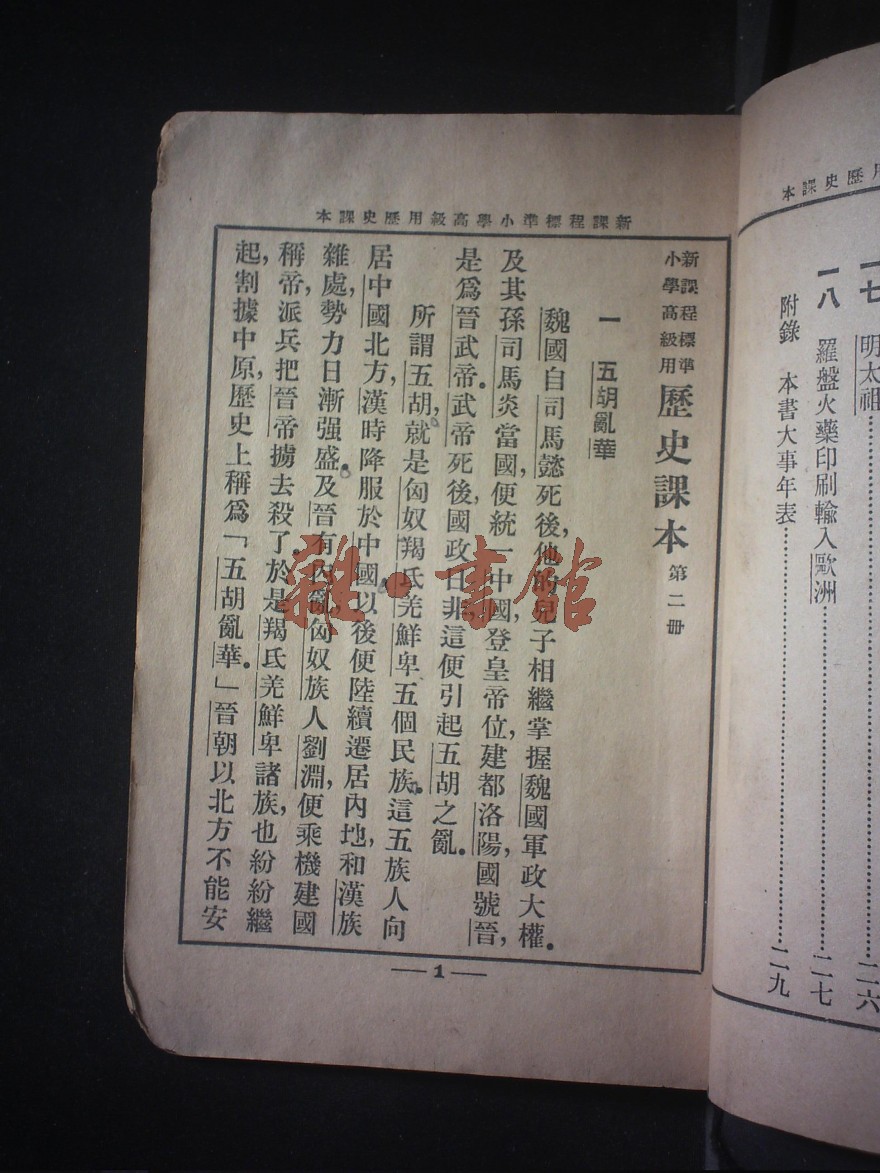 本課史歷用
一七 明太祖 二六
一八 羅盤火藥印刷輸入歐洲 二七
附錄 本書大事年表 二九
本課史歷用級高學小準標程課新
新課程標準
小學高級用
歷史課本 第二册
一 五胡亂華
魏國自司馬懿死後,他的兒子相繼掌握魏國軍政大權。
及其孫司馬炎當國,便統一中國,登皇帝位,建都洛陽,國號晉,
是爲晉武帝。武帝死後,國政日非,這便引起五胡之亂。
所謂五胡,就是匈奴羯氐羌鮮卑五個民族。這五族人向
居中國北方,漢時降服於中國,以後便陸續遷居內地,和漢族
雜處,勢力日漸强盛。及晉有內亂,匈奴族人劉淵,便乘機建國
稱帝,派兵把晉帝擄去殺了。於是羯氐羌鮮卑諸族,也紛紛繼
起,割據中原,歷史上稱爲「五胡亂華。」晉朝以北方不能安
— 1 —
雜·書館